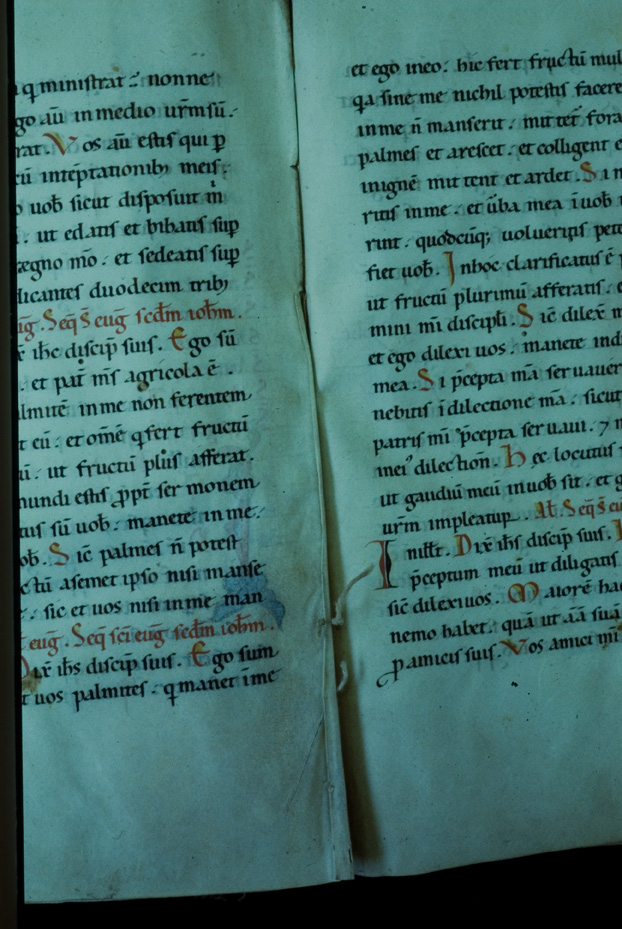 q ministrat : nonne
go aū in medio ur̄m sū.
rat. Vos aū estis qui ꝑ
cū in tēptationibꝫ meis.
uob̄ sicut disposuit m̄
ut edatis et bibatis suꝑ
regno m̄o. et sedeatis suꝑ
dicantes duodecim tribꝫ
Seq̄ s̄ eūg scd̄m ioh̄m.
ih̄c discip̄ suis. Ego sū
et pat̄ m̄s agricola ē.
lmitē in me non ferentem
t eū: et om̄ē q fert fructū
ut fructū plus afferat.
mundi estis ꝓpt̄ ser monem
tus sū uob̄. manete in me.
ob̄. Sic palmes n̄ potest
tū asemet ipso nisi manse
sic et uos nisi in me man
eūg. Seq̄ sc̄i eūg scd̄m ioh̄m.
Dix̄ ih̄s discip̄ suis. Ego sum
t uos palmites. q manet ī me
et ego in eo. hic fert fructū mul
qa sine me nichil potestis facere
in me n̄ manserit. mittet̄ fora
palmes et arescet. et colligent e
in ignē mittent et ardet. Si m
ritis in me. et ūba mea ī uob̄
rint. quodcūqꝫ uolueritis pet
fiet uob̄. In hoc clarificatus ē p
ut fructū plurimū afferatis. e
mini mi discipli. Sic dilex̄ m
et ego dilexi uos. manete in di
mea. Si p̄cepta m̄a seruauer
nebitis ī dilectione m̄a. sicut
patris mi p̄cepta seruaui. ⁊ m
mei dilection̄. Hec locutus
ut gaudiū meū in uob̄ sit. et g
ur̄m impleatur. Seq̄ s̄ eu
In illt̄. Dix̄ ih̄s discip̄ suis.
p̄ceptum meū ut diligatis
sic̄ dilexi uos. Maiorē hac
nemo habet. quā ut aīā suā
ꝑ amicis suis. Vos amici mi